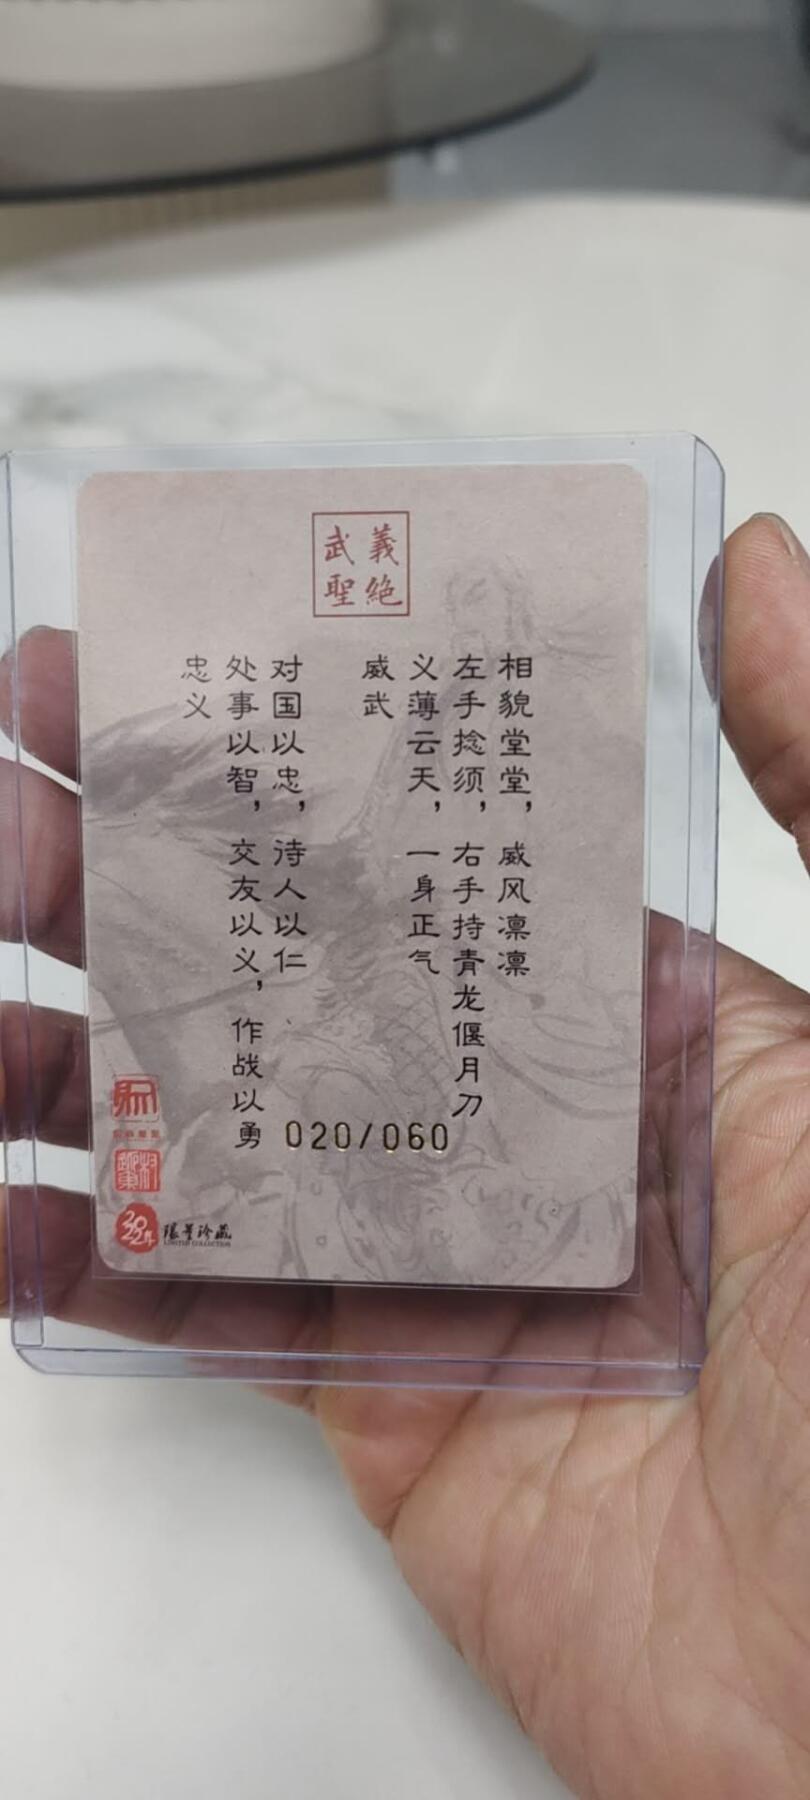 義絕
武聖
相貌堂堂，威风凛凛
左手捻须，右手持青龙偃月刀
义薄云天，一身正气
威武
对国以忠，待人以仁
处事以智，交友以义，作战以勇
忠义
020/060
限量珍藏
LIMITED COLLECTION